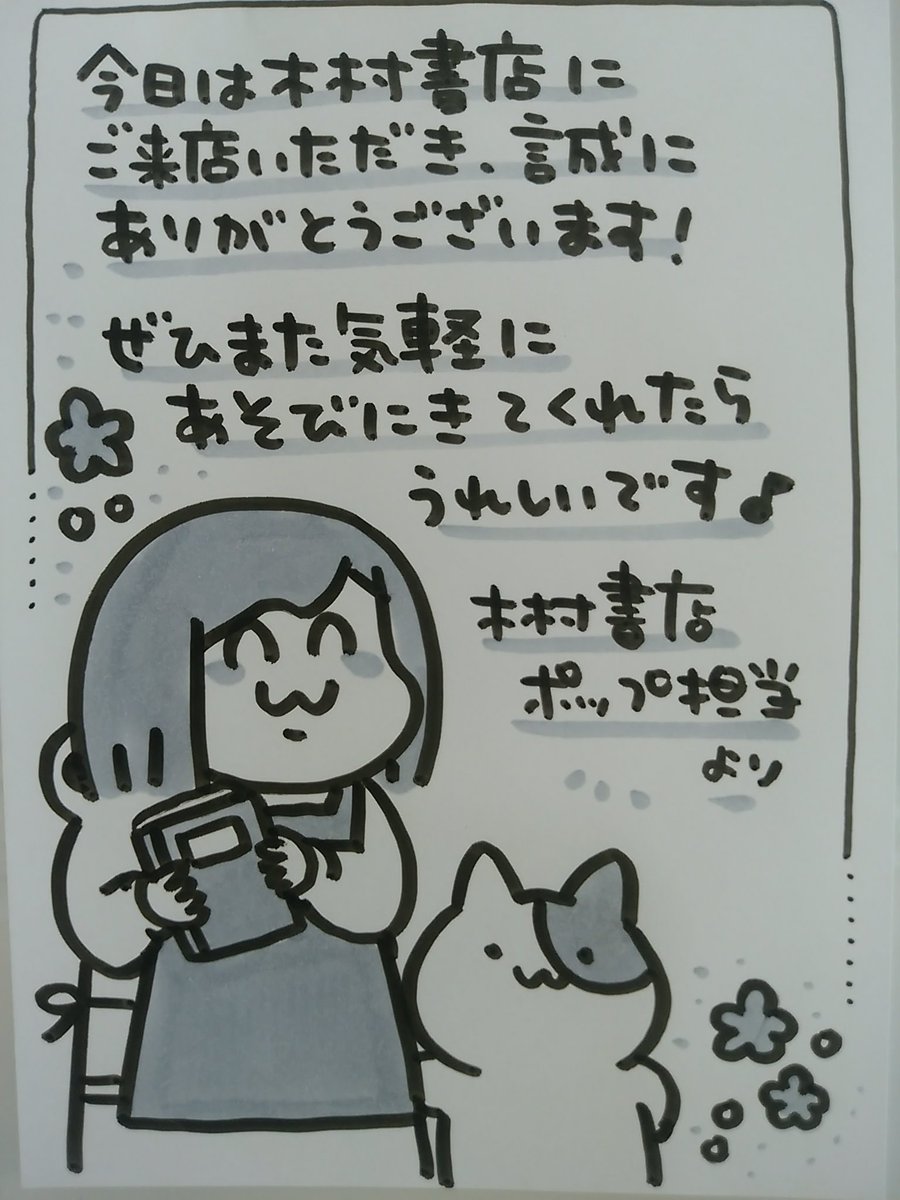 今日は木村書店に
ご来店いただき、誠に
ありがとうございます!
ぜひまた気軽に
あそびにきてくれたら
うれしいです♪
木村書店
ポップ担当
より